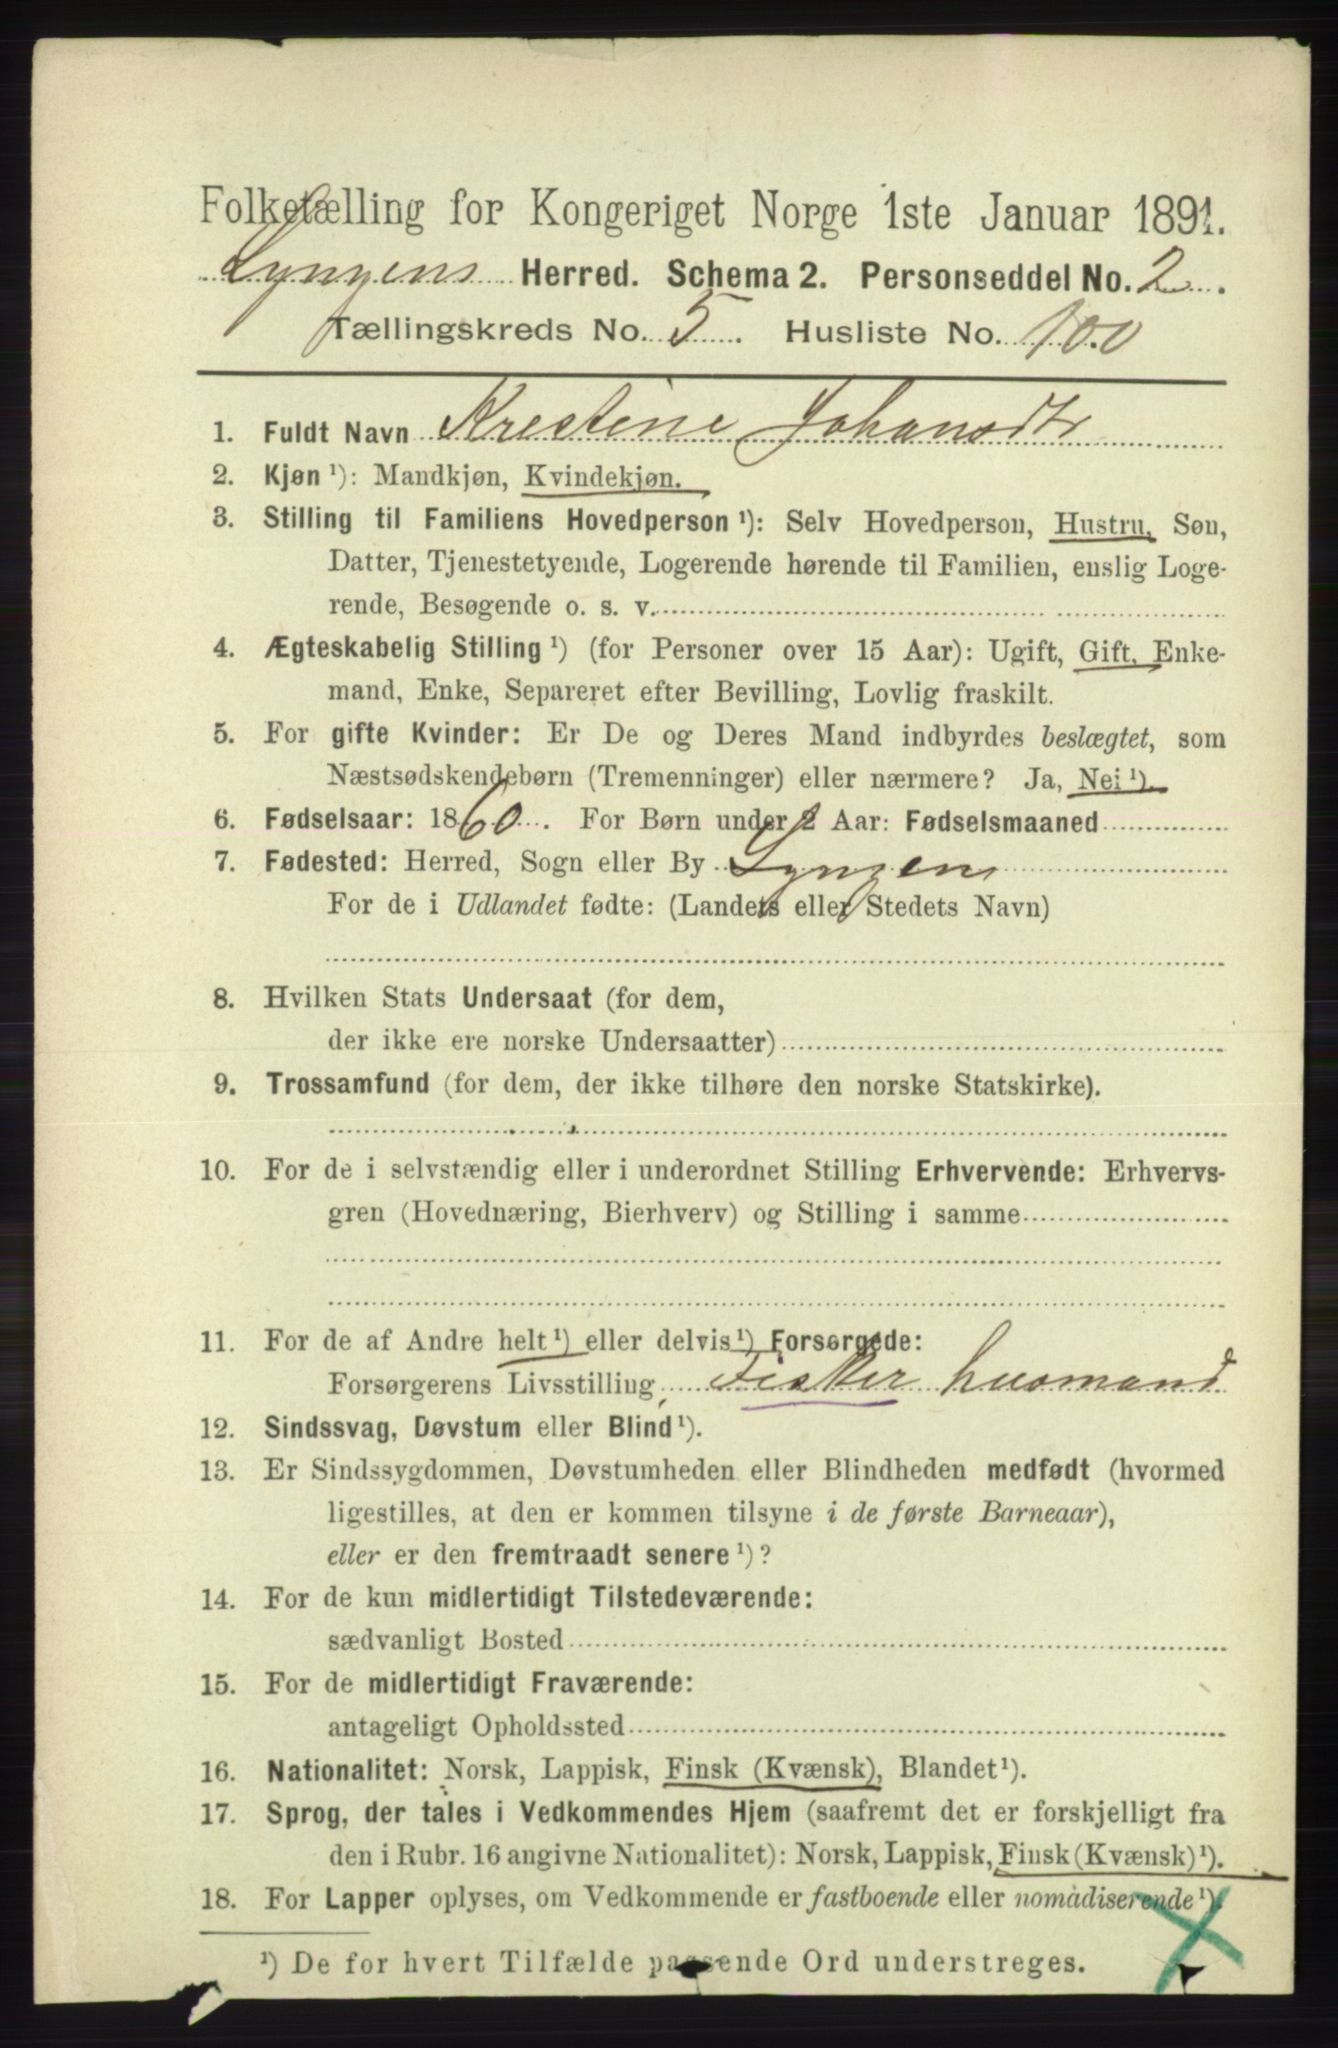 Folketælling for Kongeriget Norge 1ste Januar 1891.
Lyngens Herred. Schema 2. Personseddel No. 2.
Tællingskreds No. 5. Husliste No. 100
1. Fuldt Navn Krestine Johansdtr
2. Kjøn ¹): Mandkjøn, Kvindekjøn.
3. Stilling til Familiens Hovedperson ¹): Selv Hovedperson, Hustru, Søn,
Datter, Tjenestetyende, Logerende hørende til Familien, enslig Loge-
rende, Besøgende o. s. v.
4. Ægteskabelig Stilling ¹) (for Personer over 15 Aar): Ugift, Gift, Enke-
mand, Enke, Separeret efter Bevilling, Lovlig fraskilt.
5. For gifte Kvinder: Er De og Deres Mand indbyrdes beslægtet, som
Næstsødskendebørn (Tremenninger) eller nærmere? Ja, Nei ¹).
6. Fødselsaar: 1860. For Børn under 2 Aar: Fødselsmaaned
7. Fødested: Herred, Sogn eller By Lyngen
For de i Udlandet fødte: (Landets eller Stedets Navn)
8. Hvilken Stats Undersaat (for dem,
der ikke ere norske Undersaatter)
9. Trossamfund (for dem, der ikke tilhøre den norske Statskirke).
10. For de i selvstændig eller i underordnet Stilling Erhvervende: Erhvervs-
gren (Hovednæring, Bierhverv) og Stilling i samme
11. For de af Andre helt ¹) eller delvis ¹) Forsørgede:
Forsørgerens Livsstilling Fisker husmand
12. Sindssvag, Døvstum eller Blind ¹).
13. Er Sindssygdommen, Døvstumheden eller Blindheden medfødt (hvormed
ligestilles, at den er kommen tilsyne i de første Barneaar),
eller er den fremtraadt senere ¹)?
14. For de kun midlertidigt Tilstedeværende:
sædvanligt Bosted
15. For de midlertidigt Fraværende:
antageligt Opholdssted
16. Nationalitet: Norsk, Lappisk, Finsk (Kvænsk), Blandet ¹).
17. Sprog, der tales i Vedkommendes Hjem (saafremt det er forskjelligt fra
den i Rubr. 16 angivne Nationalitet): Norsk, Lappisk, Finsk (Kvænsk) ¹).
18. For Lapper oplyses, om Vedkommende er fastboende eller nomadiserende ¹).
¹) De for hvert Tilfælde passende Ord understreges.